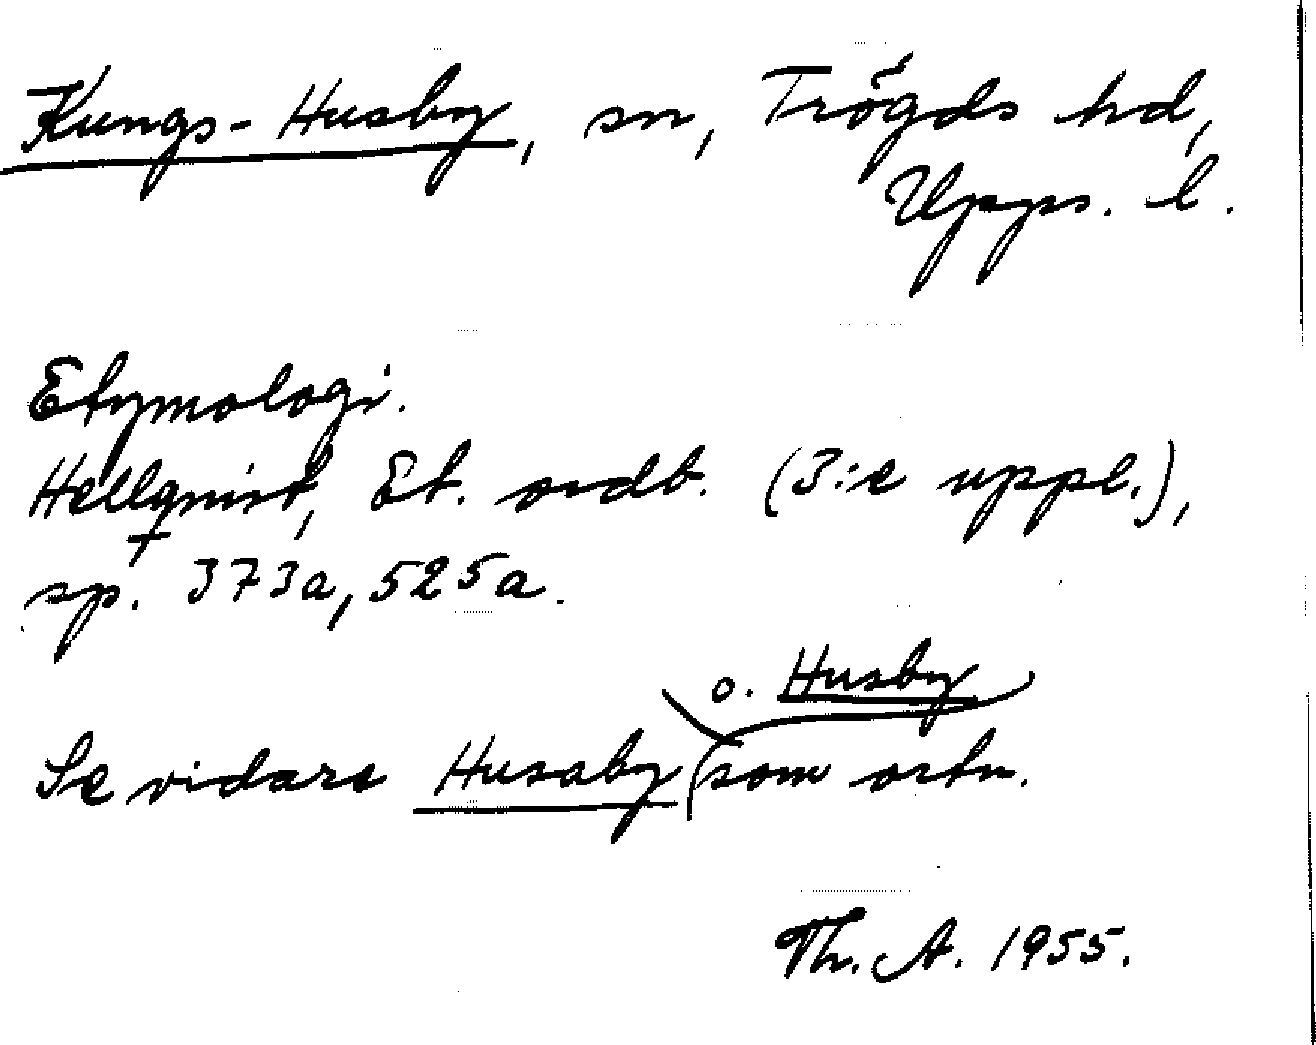 Kungs-Husby, sn, Trögds hd,
Upps. l.
Etymologi.
Hellquist, Et. ordb. (3:e uppl.),
sp. 373a, 525a.
Se vidare Husaby o. Husby som ortn.
Th. A. 1955.